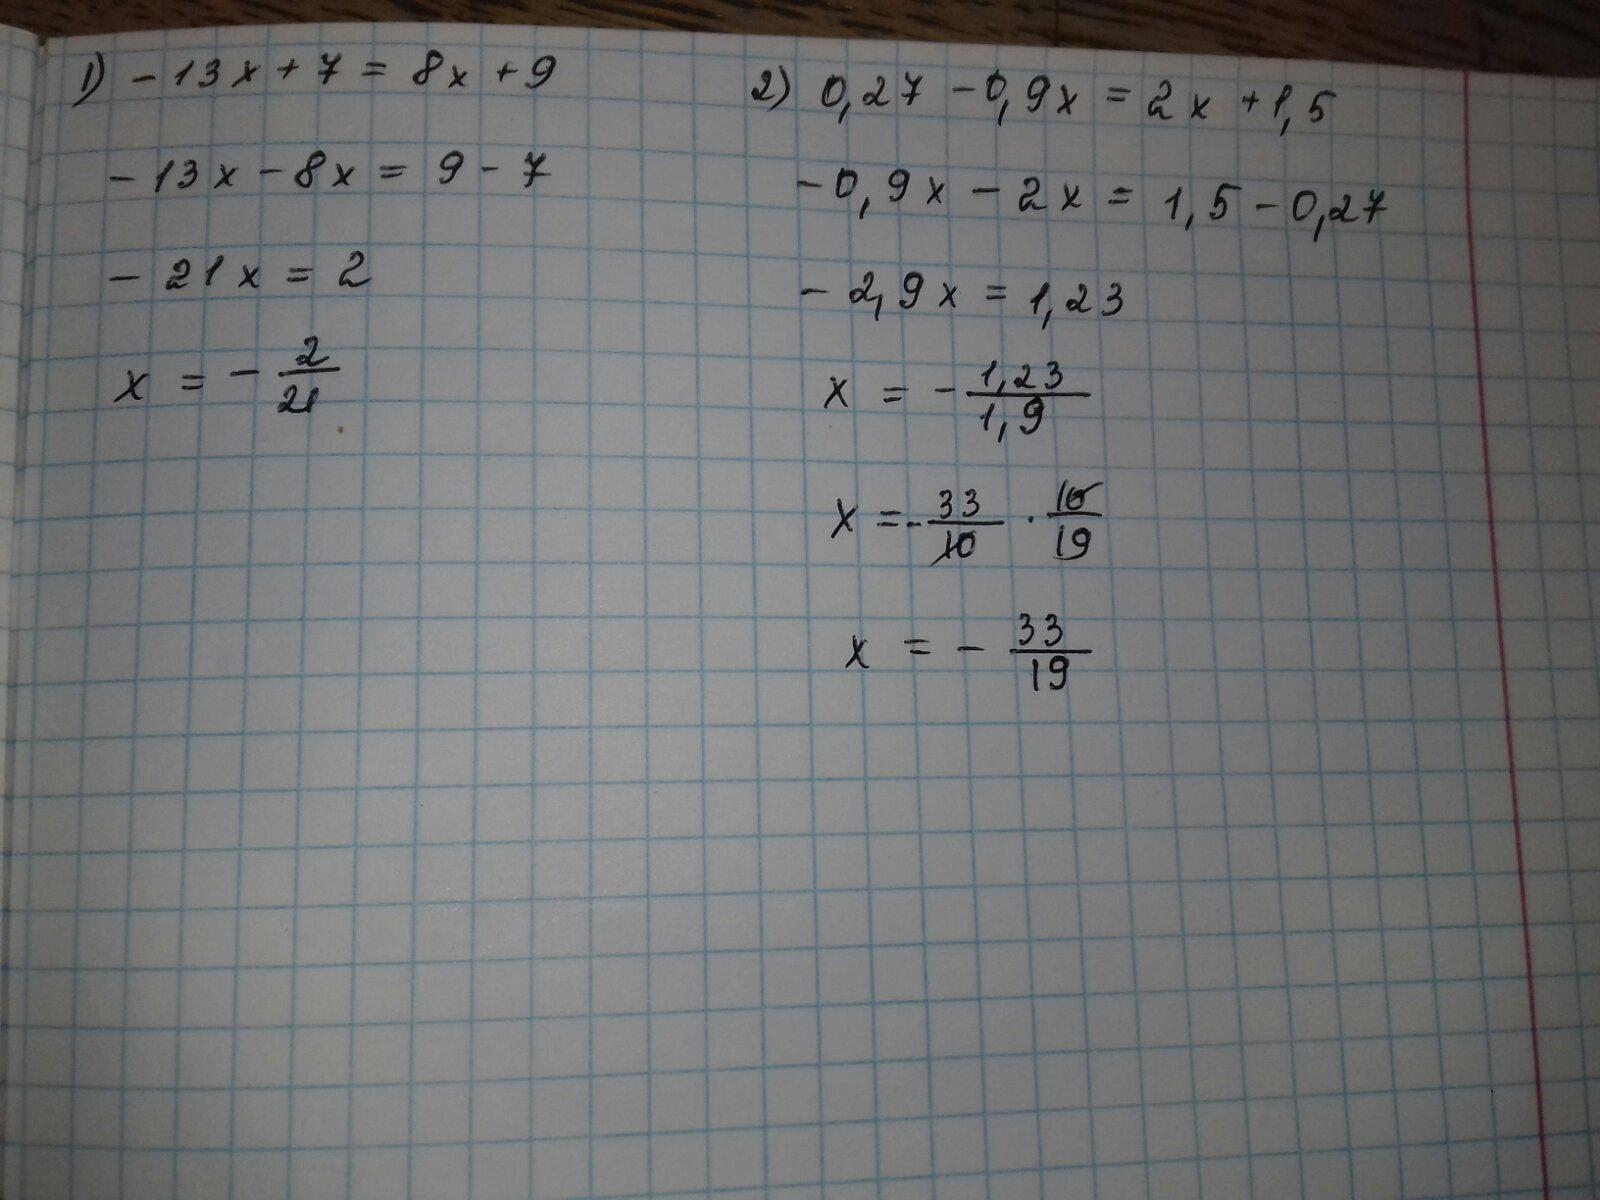 1) -13x + 7 = 8x + 9
-13x - 8x = 9 - 7
-21x = 2
x = - 2/21
2) 0,27 - 0,9x = 2x + 1,5
-0,9x - 2x = 1,5 - 0,27
-2,9x = 1,23
x = - 1,23/1,9
x = - 33/10 · 10/19
x = - 33/19